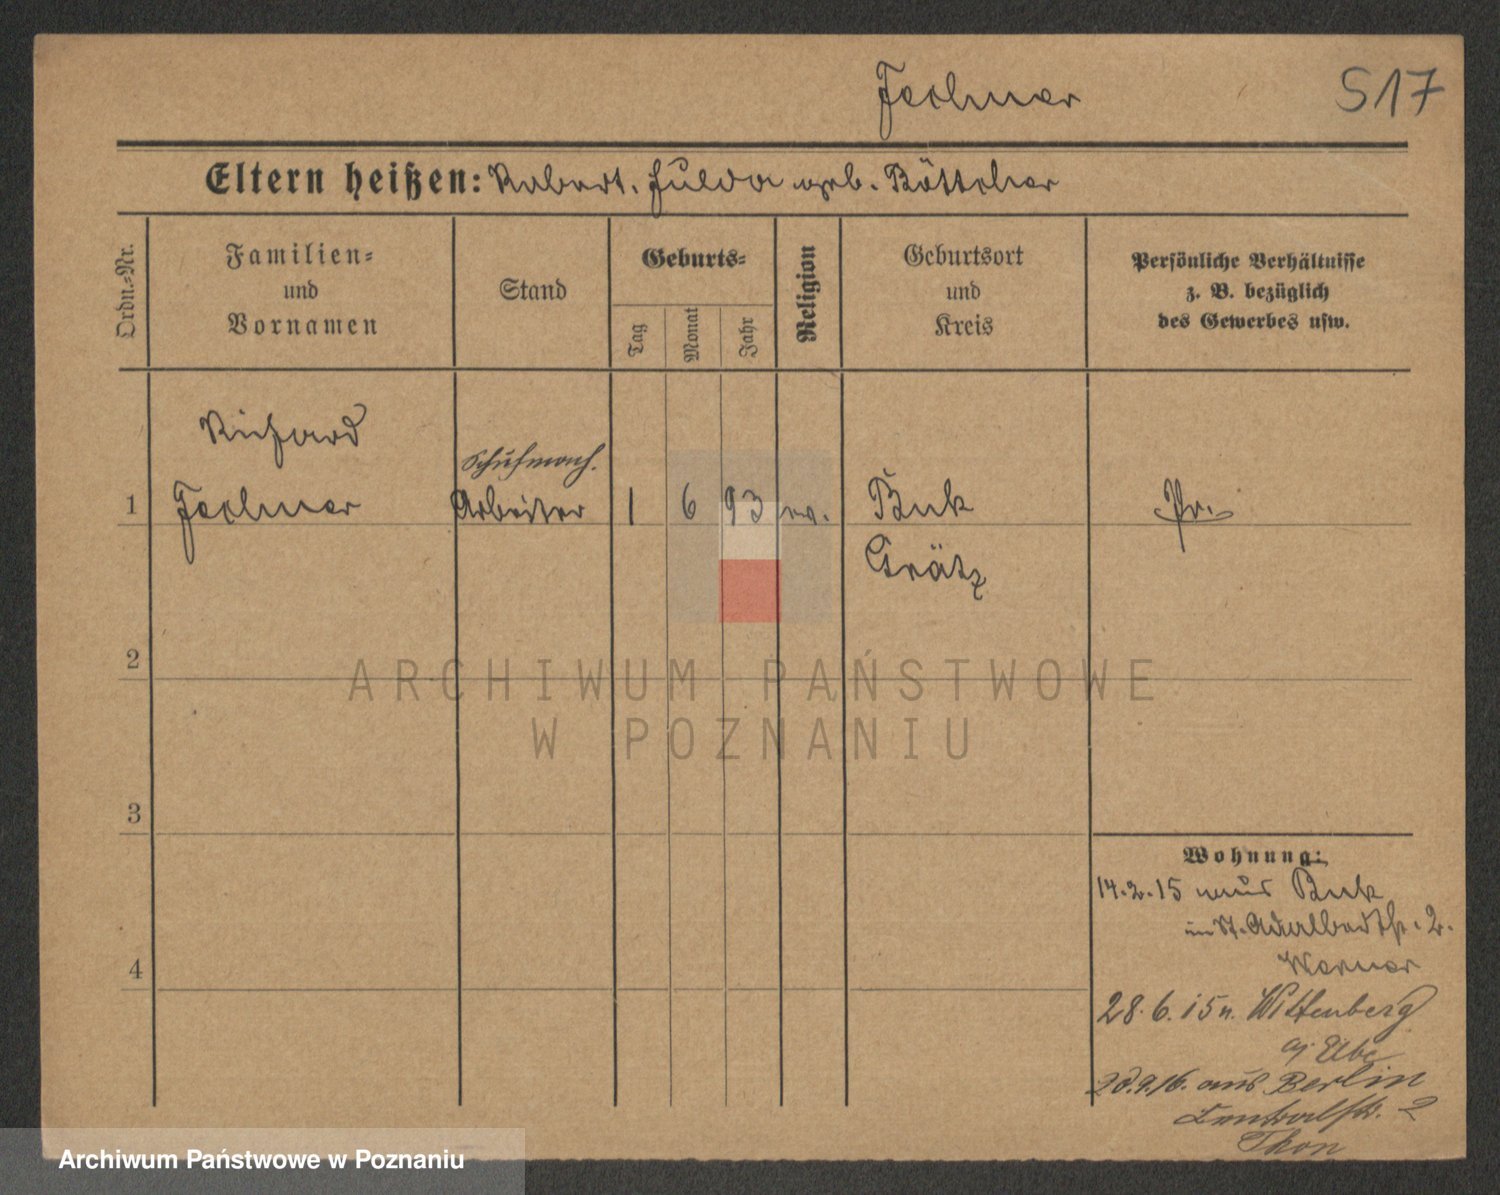 Fechner
S17
Eltern heißen: Robert. Hulda geb. Böttcher
Ordn.-Nr.
Familien-
und
Vornamen
Stand
Geburts-
Tag
Monat
Jahr
Religion
Geburtsort
und
Kreis
Persönliche Verhältnisse
z. B. bezüglich
des Gewerbes usw.
Richard
Schuhmach.
1 Fechner Arbeiter 1 6 93 ev. Buk Pr.
Grätz
2
ARCHIWUM PAŃSTWOWE
W POZNANIU
3
Wohnung:
14.2.15 aus Buk
in St. Adalbertstr. 2.
4
Werner
28.6.15 n. Wittenberg
Elbe
20.9.16. aus Berlin
Zentralstr. 2
Thon
Archiwum Państwowe w Poznaniu